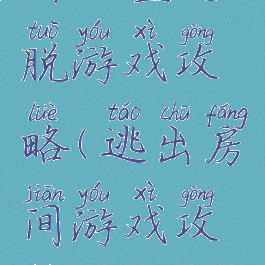 tuō yóu xì gōng
脱游戏攻
lüè táo chū fáng
略(逃出房
jiān yóu xì gōng
间游戏攻